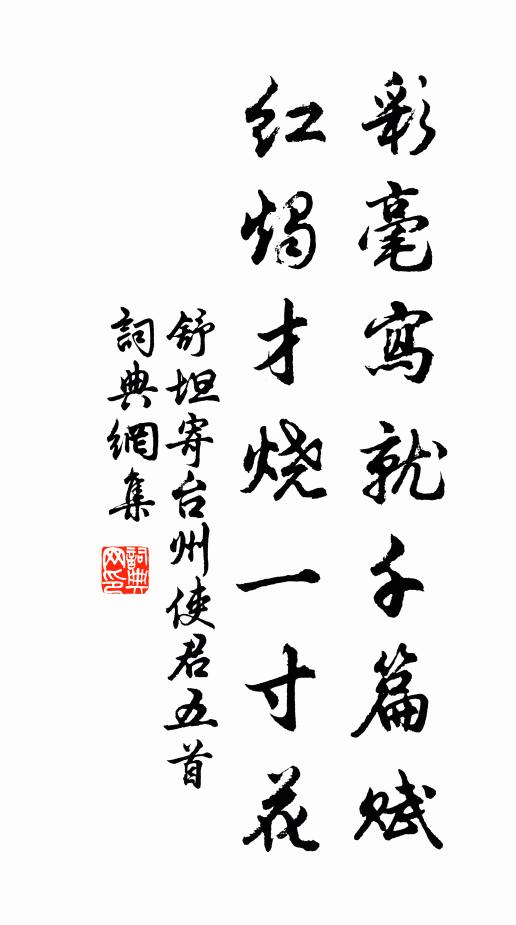 彩毫寫就千篇赋
红烛才烧一寸花
舒坦寄台州使君五首
詞典網集
詞典网印